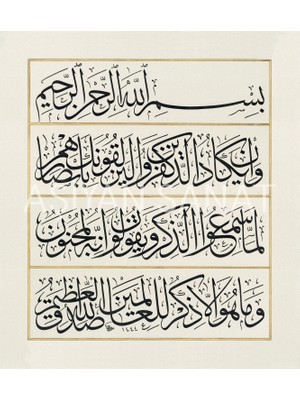 بسم الله الرحمن الرحيم
وإن يكاد الذين كفروا ليزلقونك بأبصارهم
ASİYAN SANAT
لما سمعوا الذكر ويقولون إنه لمجنون
وما هو إلا ذكر للعالمين صدق الله العظيم
١٤٤٤